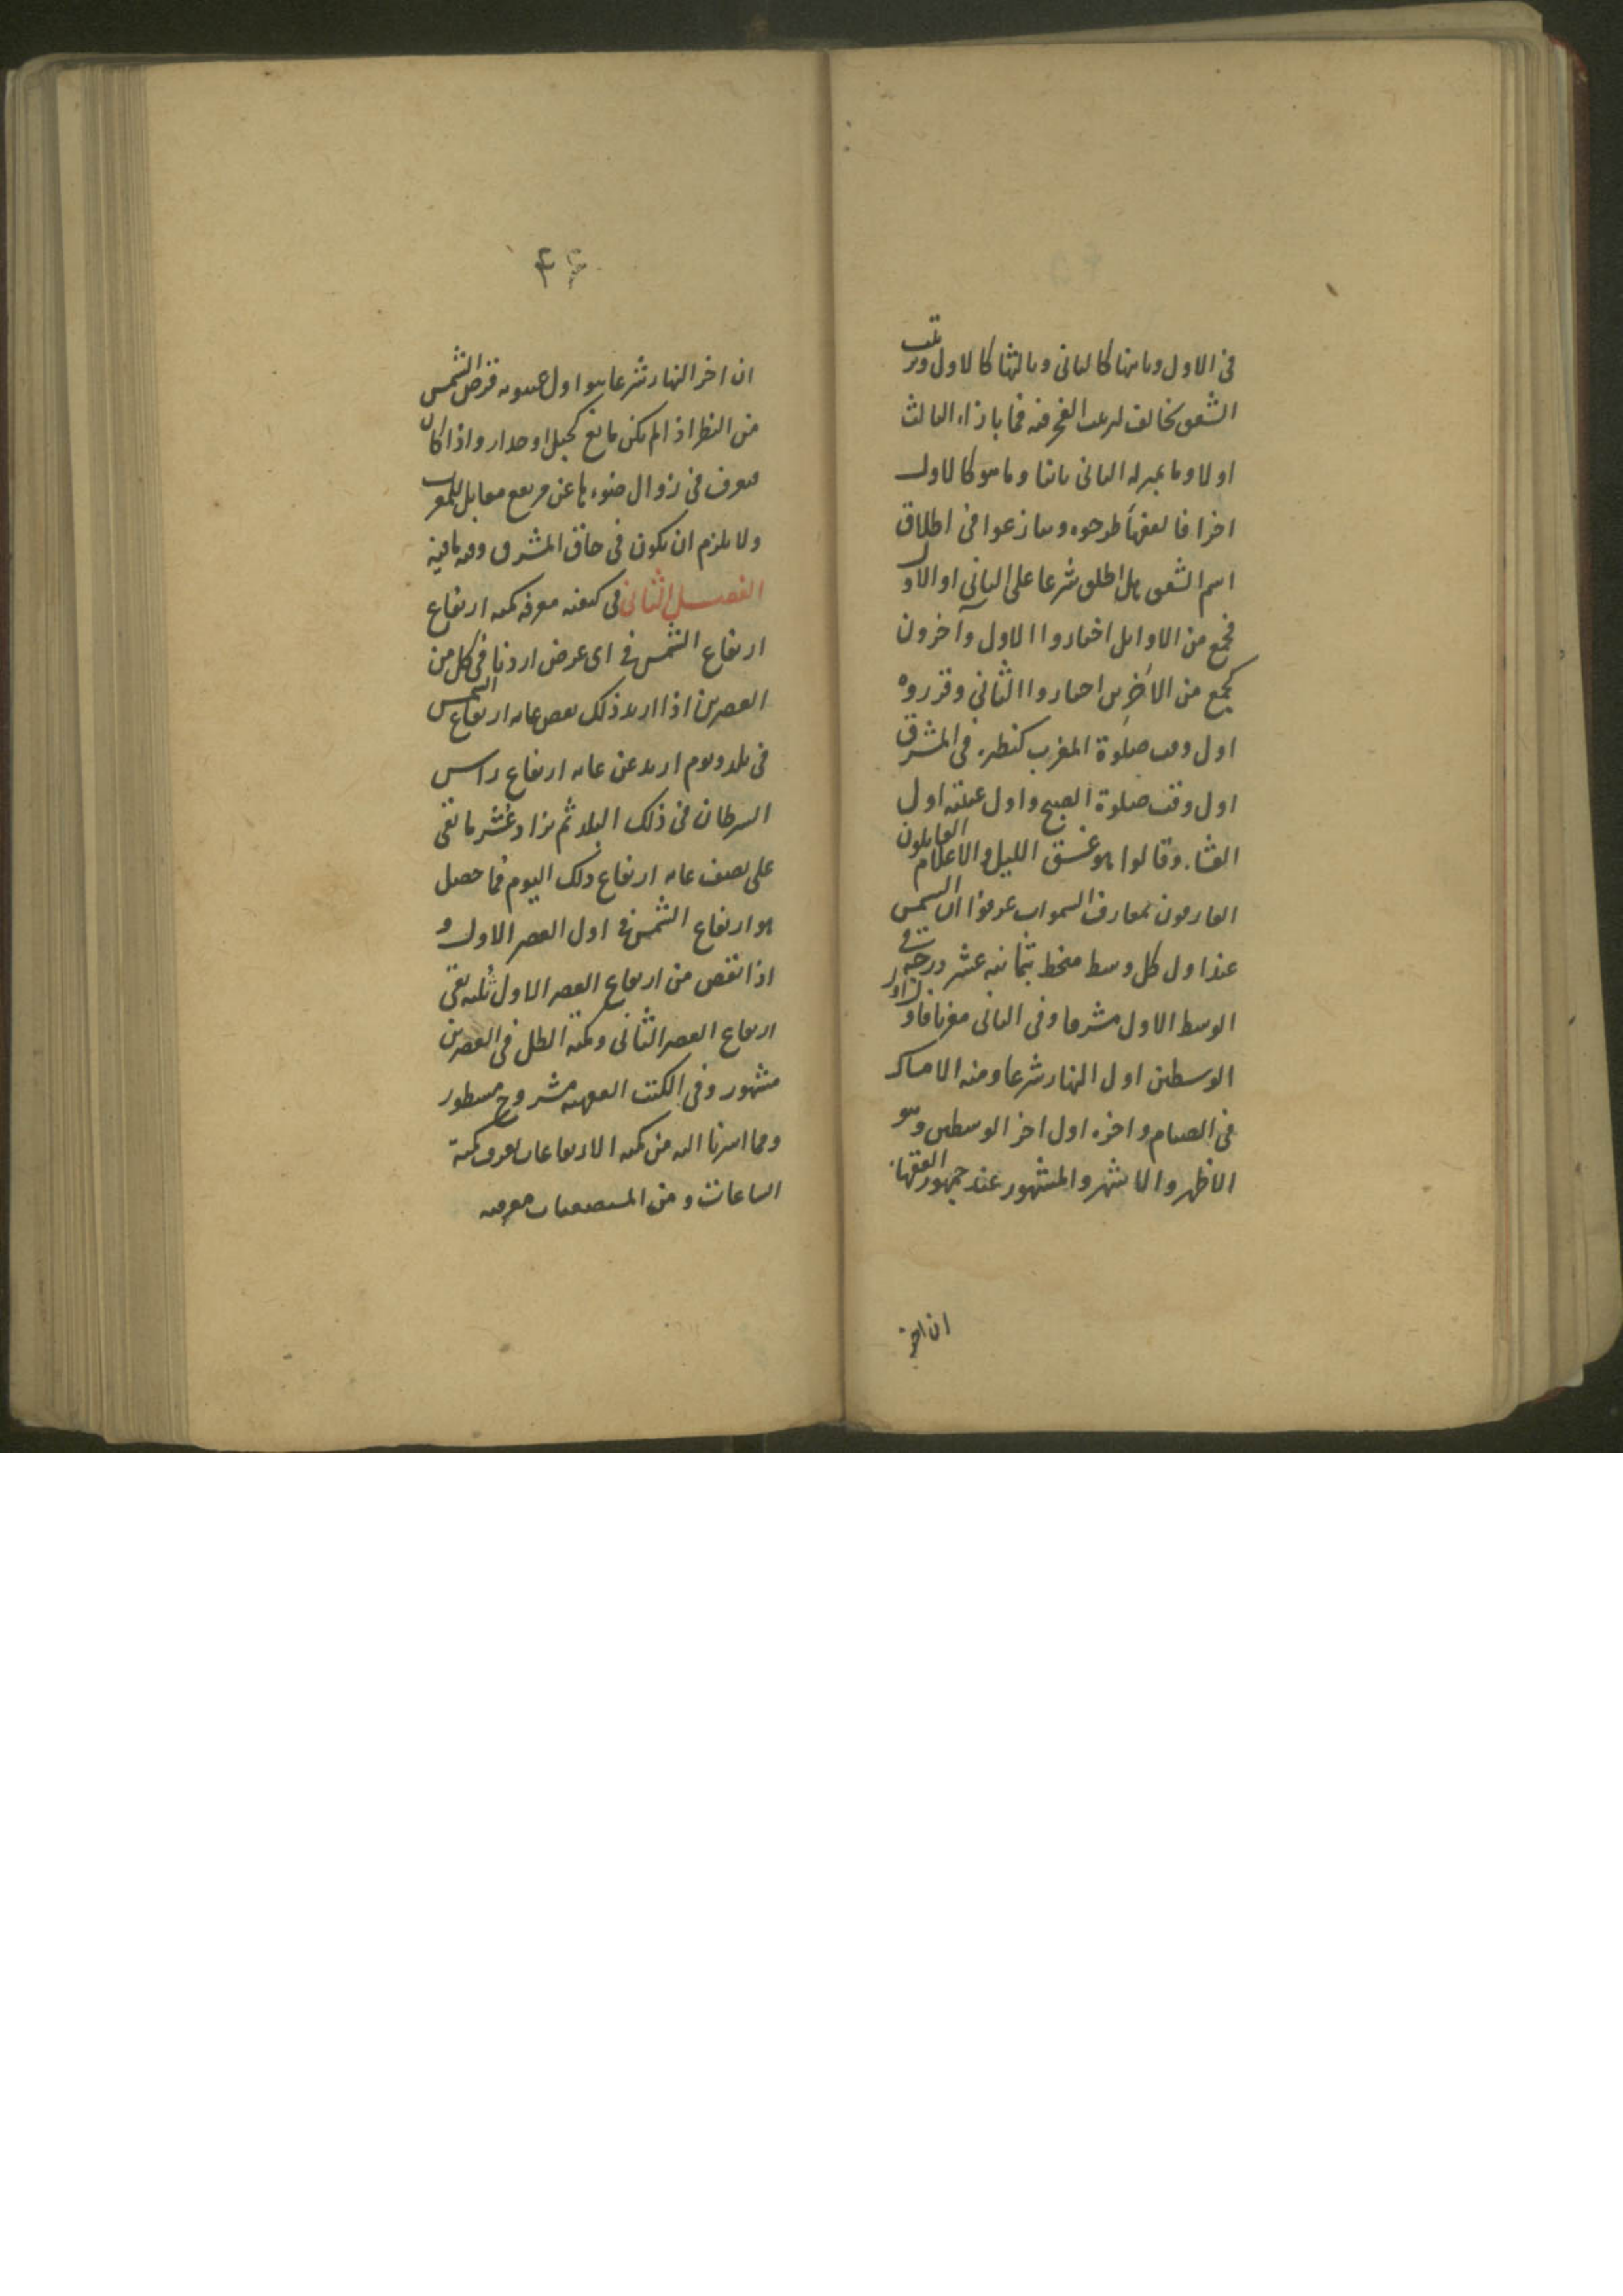 فى الاول وثانيها كالثانى وثالثها كالاول وترتيب
الشفق يخالف لترتيب الفجر فيه فما بازاء الثالث
اولا وما بمنزلة الثانى ثانيا وما هو كالاول
اخرا فالفقهاء طرحوه وتنازعوا فى اطلاق
اسم الشفق هل اطلق شرعا على الثانى او الاول
فجمع من الاوائل اختاروا الاول وآخرون
كجمع من الاخرين اختاروا الثانى وقرروه
اول وقت صلوة المغرب كنظيره فى المشرق
اول وقت صلوة الصبح واول غيبته اول
العشاء وقالوا هو غسق الليل والاعلام القايلون
العارفون بمعارف السموات عرفوا ان الشمس
عند اول كل وسط منحط بثمانية عشر درجة فى
الوسط الاول مشرقا وفى الثانى مغربا فاول
الوسطين اول النهار شرعا ومنه الامساك
فى الصيام واخره اول اخر الوسطين وهو
الاظهر والاشهر والمشهور عند جمهور الفقهاء
ان اخر
۴۶
ان اخر النهار شرعا هو اول غيبوبة قرص الشمس
من النظر اذا لم يكن مانع كجبل او جدار واذا كان
فيعرف فى زوال ضوءها عن مرتفع مقابل للمغرب
ولا يلزم ان يكون فى حاق المشرق وفيه ما فيه
الفصل الثانى فى كيفية معرفة كمية ارتفاع
ارتفاع الشمس فى اى عرض اردنا فى كل من
العصرين اذا اريد ذلك نقص غاية ارتفاع الشمس
فى بلد ويوم اريد عن غاية ارتفاع راس
السرطان فى ذلك البلد ثم يزاد عُشر ما بقى
على نصف غاية ارتفاع ذلك اليوم فما حصل
هو ارتفاع الشمس فى اول العصر الاول و
اذا نقص من ارتفاع العصر الاول ثلثه بقى
ارتفاع العصر الثانى وكمية الظل فى العصرين
مشهور وفى الكتب الفقهية مشروح مسطور
ومما اشرنا اليه من كمية الارتفاعات يعرف كمية
الساعات ومن المستصعبات معرفة